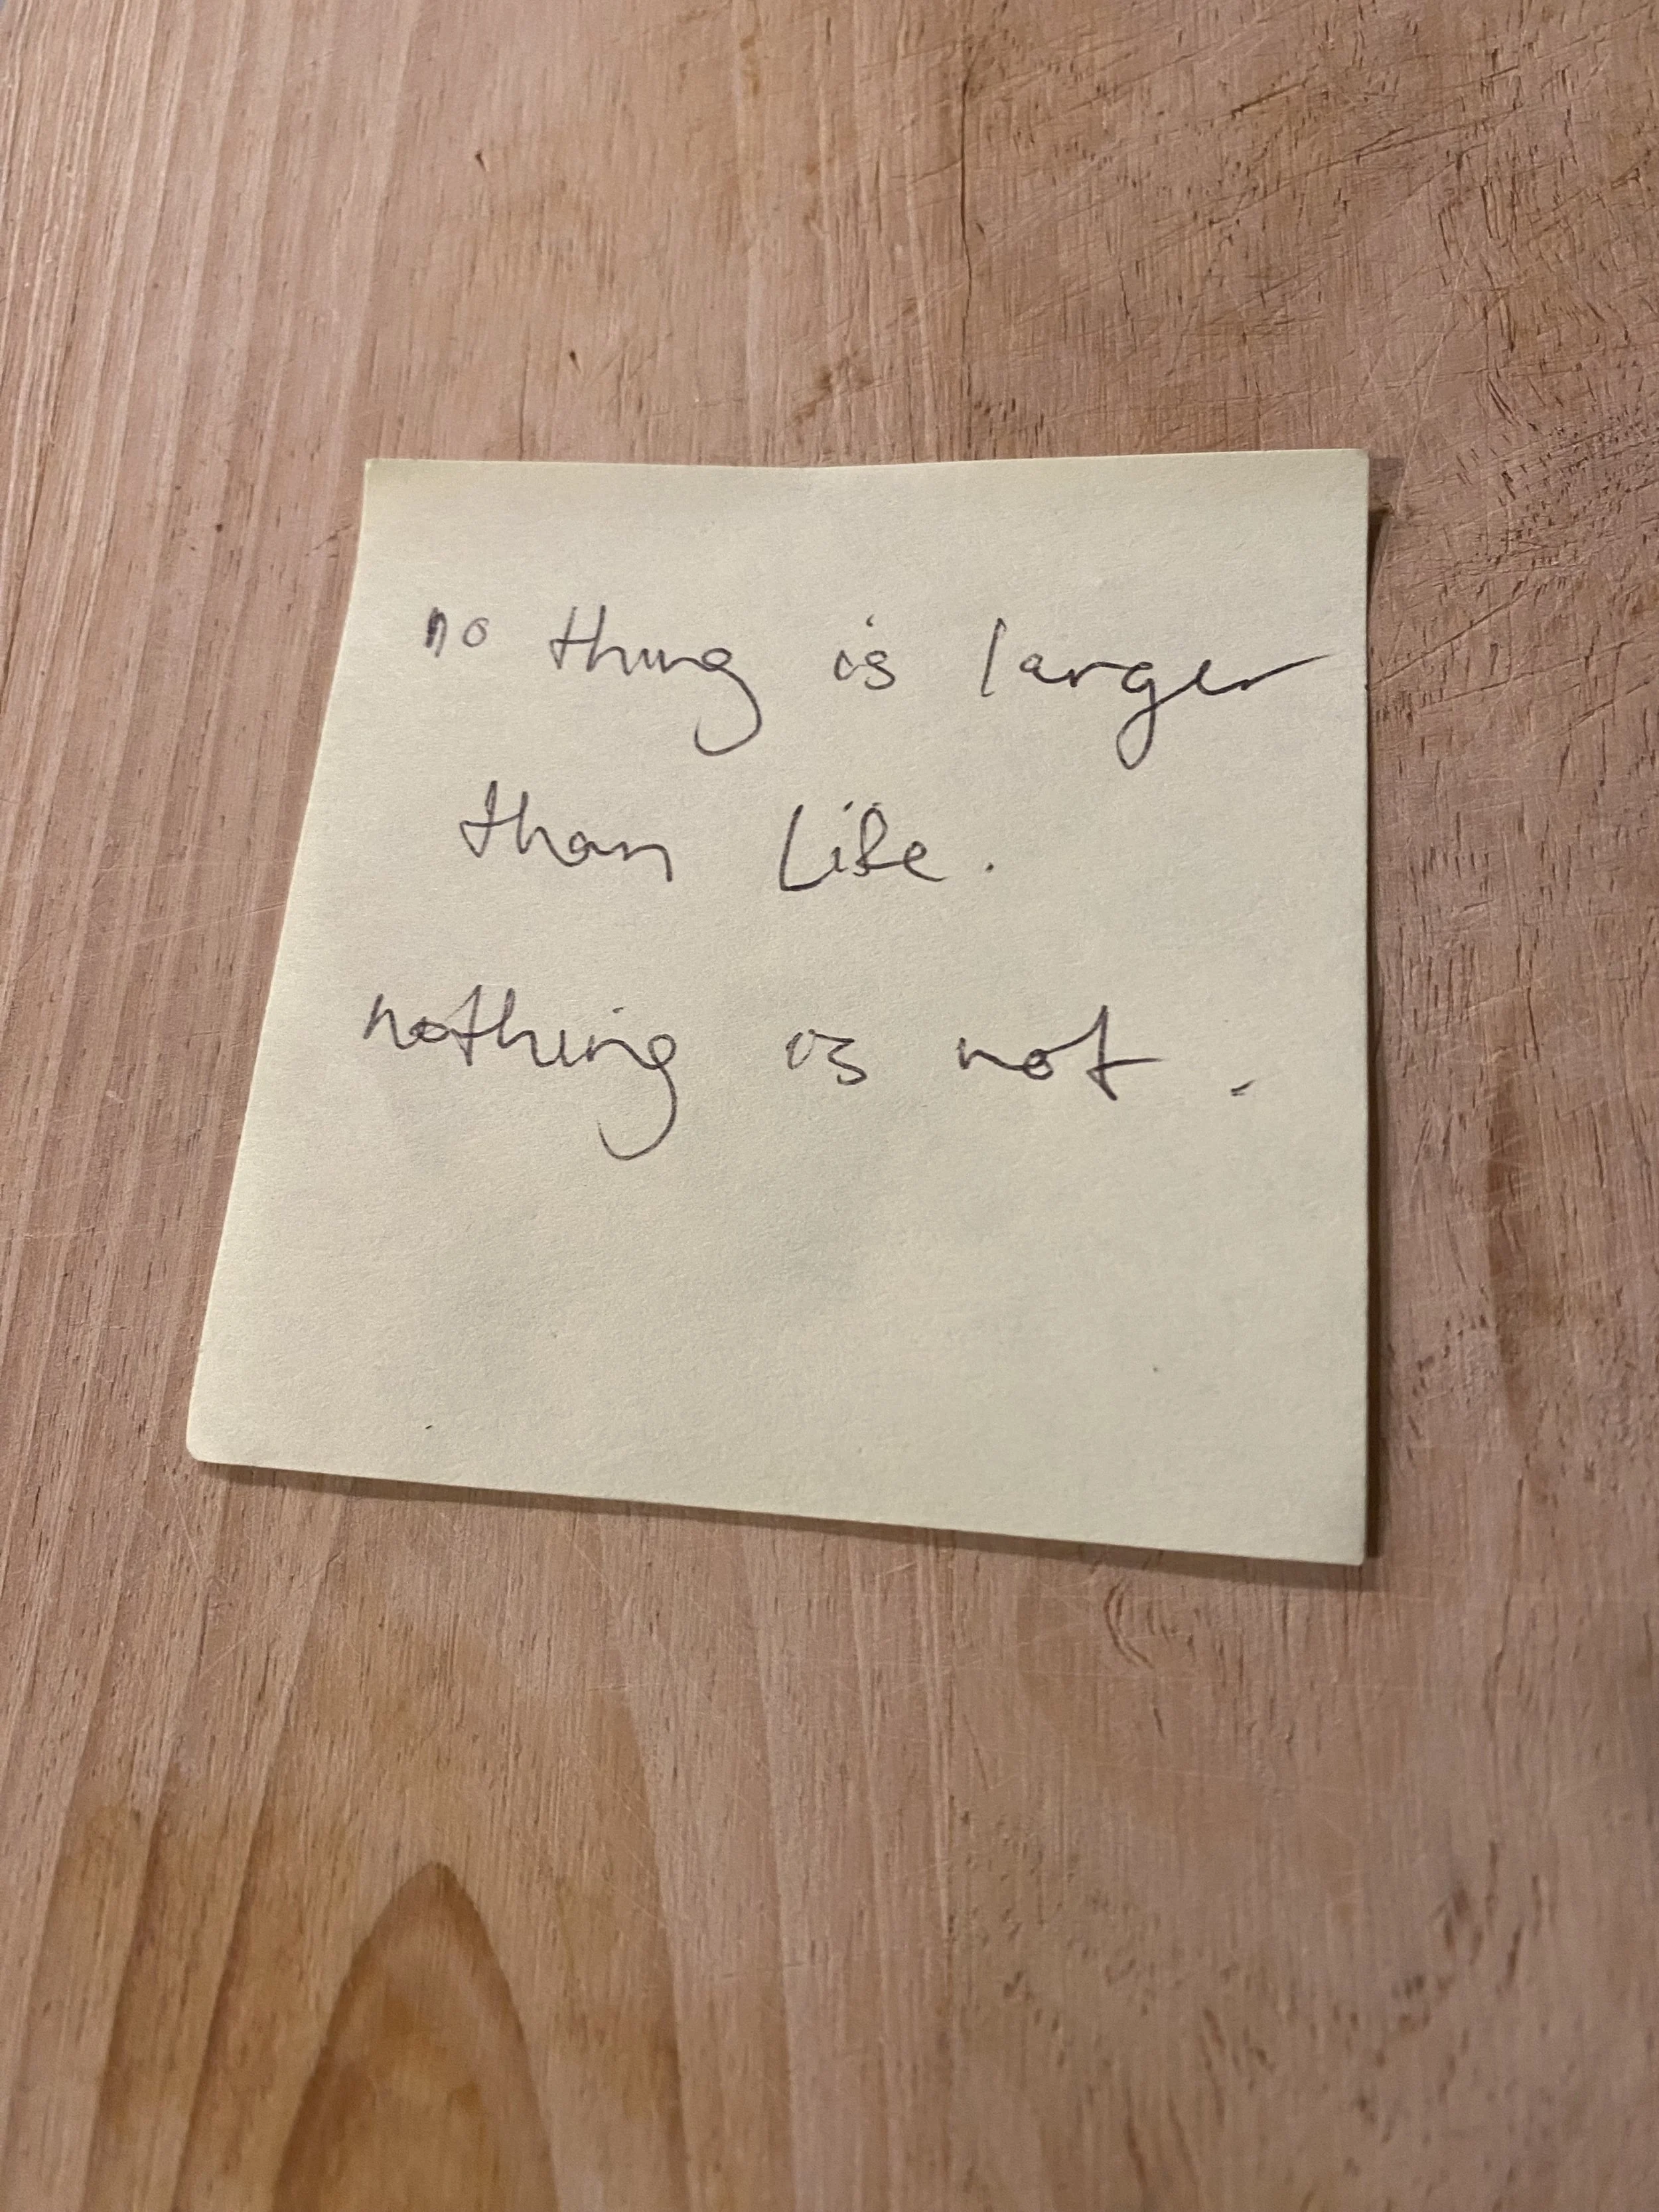 no thing is larger
than Life.
nothing is not.